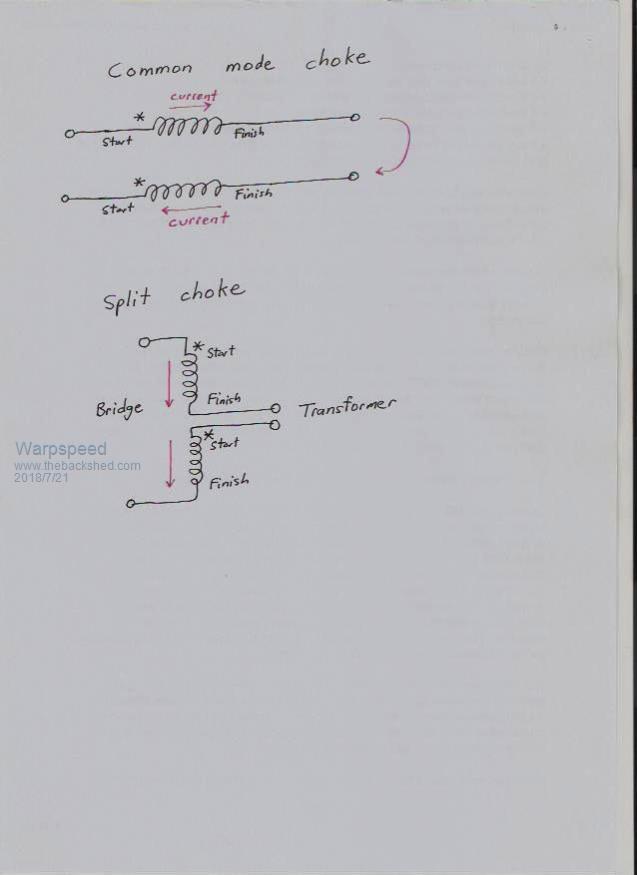 Common mode choke
current
*
Start
Finish
*
Start
Finish
current
Split choke
* Start
Finish
Bridge
Transformer
* Start
Finish
Warpspeed
www.thebackshed.com
2018/7/21